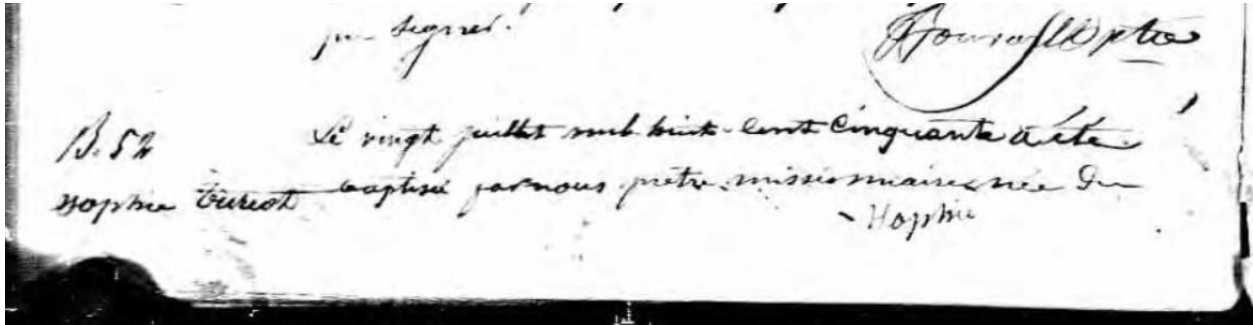 pu signer.
ptre
B. 52
Sophie Turcot
Le vingt juillet mil huit cent cinquante a été
baptisé par nous prêtre missionnaire née du
Sophie